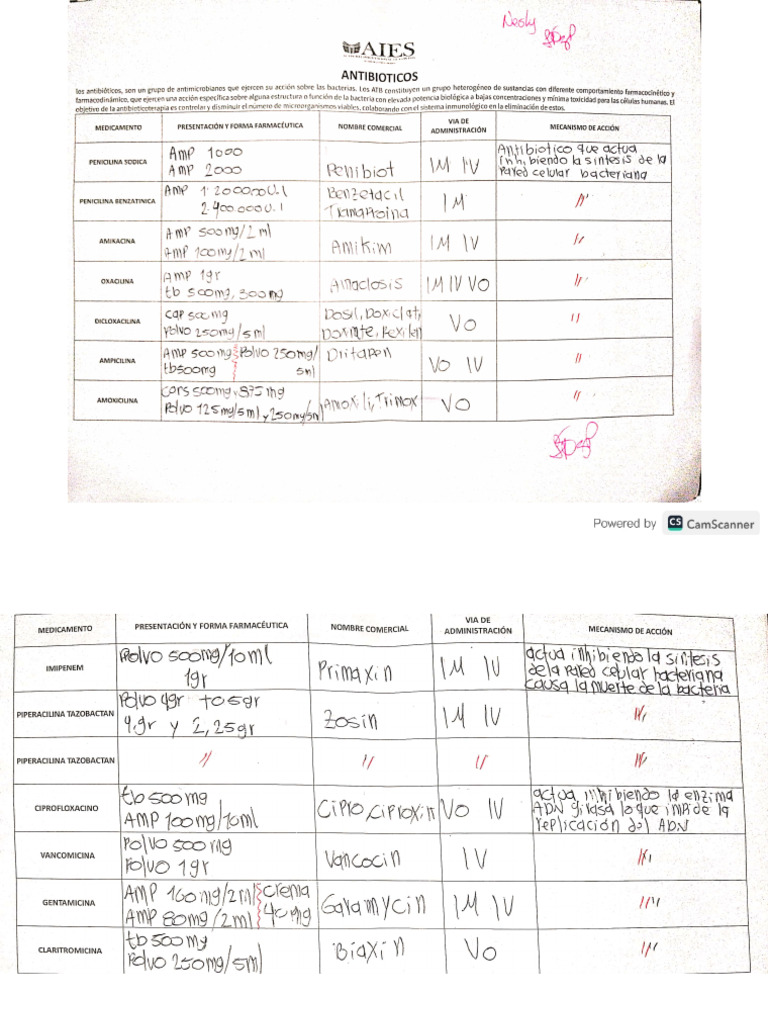 Nesly
AIES
ANTIBIOTICOS
los antibióticos, son un grupo de antimicrobianos que ejercen su acción sobre las bacterias. Los ATB constituyen un grupo heterogéneo de sustancias con diferente comportamiento farmacocinético y
farmacodinámico, que ejercen una acción específica sobre alguna estructura o función de la bacteria con elevada potencia biológica a bajas concentraciones y mínima toxicidad para las células humanas. El
objetivo de la antibioticoterapia es controlar y disminuir el número de microorganismos viables, colaborando con el sistema inmunológico en la eliminación de estos.
MEDICAMENTO PRESENTACIÓN Y FORMA FARMACÉUTICA NOMBRE COMERCIAL VIA DE ADMINISTRACIÓN MECANISMO DE ACCIÓN
PENICILINA SODICA Amp 1000 Amp 2000 Penibiot IM IV Antibiotico que actua inhibiendo la sintesis de la Pared celular bacteriana
PENICILINA BENZATINICA Amp 1.200.000 U.I 2.400.000 U.I Benzetacil IM //
AMIKACINA Amp 500mg/2ml Amp 100mg/2ml Amikim IM IV //
OXACILINA Amp 1gr tb 500mg, 300mg IM IV VO //
DICLOXACILINA cap 500mg Polvo 250mg/5ml VO //
AMPICILINA Amp 500mg tb500mg Polvo 250mg/5ml VO IV //
AMOXICILINA 500mg, 875mg Polvo 125mg/5ml y 250mg/5ml Amoxil, Trimox VO //
Powered by CS CamScanner
MEDICAMENTO PRESENTACIÓN Y FORMA FARMACÉUTICA NOMBRE COMERCIAL VIA DE ADMINISTRACIÓN MECANISMO DE ACCIÓN
IMIPENEM Polvo 500mg/10ml 1gr Primaxin IM IV actua inhibiendo la sintesis de la Pared celular bacteriana causa la muerte de la bacteria
PIPERACILINA TAZOBACTAN Polvo 4gr to 5gr 4,gr y 2,25gr Zosin IM IV //
PIPERACILINA TAZOBACTAN // // // //
CIPROFLOXACINO tb 500mg AMP 100mg/10ml Cipro, Ciproxin VO IV actua inhibiendo la enzima ADN girasa lo que impide la replicación del ADN
VANCOMICINA Polvo 500mg Polvo 1gr Vancocin IV //
GENTAMICINA AMP 160mg/2ml AMP 80mg/2ml crema 40mg Garamycin IM IV //
CLARITROMICINA tb 500mg Polvo 250mg/5ml Biaxin VO //